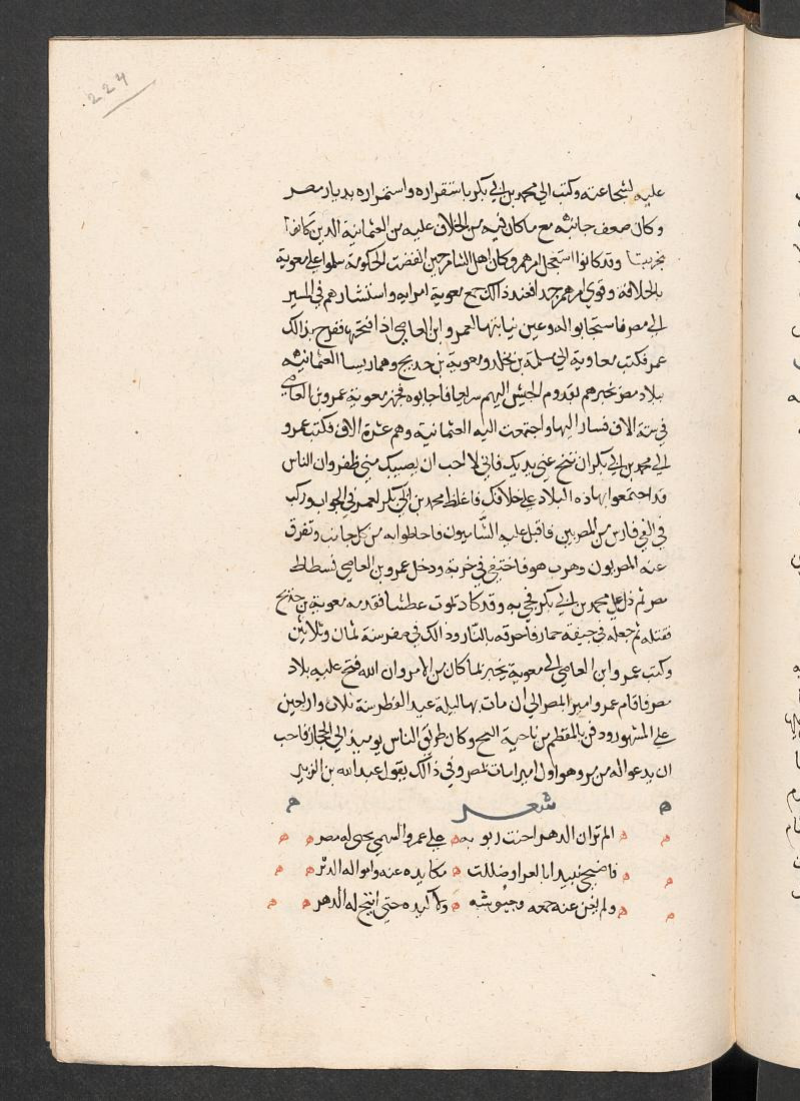 224
عليه لشجاعته وكتب الي محمد بن ابي بكر باستقراره واستمراره بديار مصر
وكان ضعف جانبه مع ما كان فيه من الخلاف عليه من العثمانية الدين كانوا
بخربتا وقد كانوا استفحل امرهم وكان اهل الشام حين انقضت الحكومة سلموا علي معوية
بالخلافة وقوي امرهم جدا فعند ذالك جمع معوية امرايه واستشارهم في المسير
الي مصر فاستجابوا له وعين نيابتها لعمرو ابن العاصي اذا افتتحها ففرح بذالك
عمر فكتب معاوية الي مسلمة بن مخلد ومعوية بن حديج وهما ريسا العثمانيه
ببلاد مصر يخبرهم بقدوم الجيش اليهم سريعا فاجابوه فجهز معوية عمرو بن العاصي
في ستة الاف فسار اليها واجتمعت اليه العثمانية وهم عشرة الاف فكتب عمرو
الي محمد بن ابي بكر ان تنح عني بديك فاني لا احب ان يصيبك مني ظفر وان الناس
قد اجتمعوا بهاذه البلاد علي خلافك فاغلظ محمد بن ابي بكر لعمرو في الجواب وركب
في الفي فارس من المصريين فاقبل عليه الشاميون فاحاطوا به من كل جانب وتفرق
عنه المصريون وهرب هو فاختفي في خربة ودخل عمرو بن العاصي فسطاط
مصر ثم دل علي محمد بن ابي بكر فجي به وقد كاد يموت عطشا فقدمه معوية بن حديج
فقتله ثم جعله في جيفة حمار فاحرقه بالنار وذالك في صفر سنة ثمان وثلاثين
وكتب عمرو ابن العاصي الي معوية يخبره بما كان من الامر وان الله فتح عليه بلاد
مصر فاقام عمرو اميرا لمصر الي ان مات بها ليلة عيد الفطر سنة ثلاث واربعين
علي المشهور ودفن بالمقطم من ناحية الفج وكان طريق الناس يوميذ الي الحجاز فاحب
ان يدعو اله من مر وهو اول امير مات بمصر وفي ذالك يقول عبد الله بن الزبير
شعر
الم تر ان الدهر اخنت ريوبه علي عمرو السهمي يجبي له مصر
فاضحي نبيدا بالعرا وضللت مكايده عنه وامواله الدثر
ولم يغن عنه جمعه وجيوشه ولا كيده حتي اتيح له الدهر